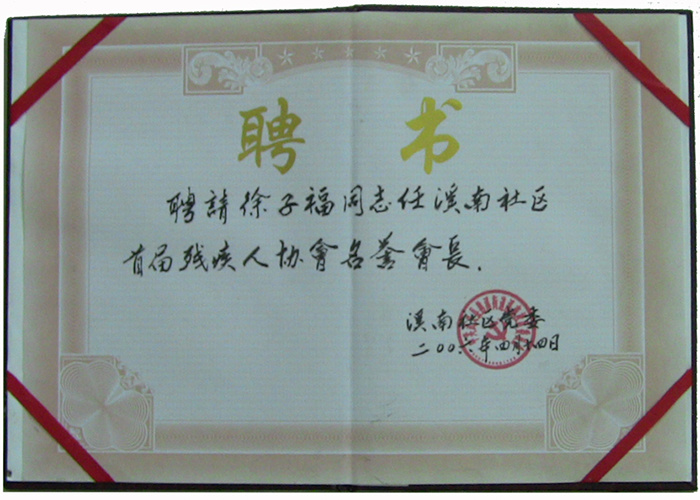 聘书
聘請徐子福同志任溪南社区
首届残疾人协會名誉會長.
溪南社区党委
二00六年四月十四日